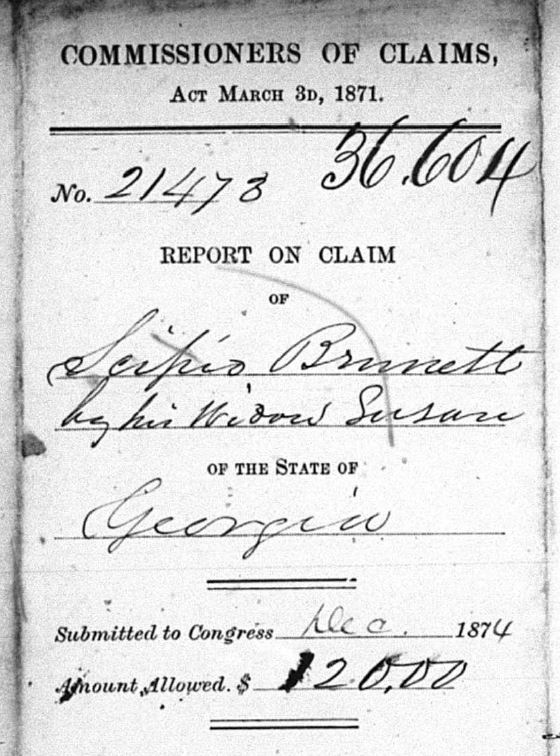 COMMISSIONERS OF CLAIMS,
ACT MARCH 3D, 1871.
No. 21473 36.604
REPORT ON CLAIM
OF
Scipio Brunett
by his Widow Susan
OF THE STATE OF
Georgia
Submitted to Congress Dec. 1874
Amount Allowed. $ 120.00